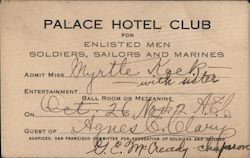 PALACE HOTEL CLUB
FOR
ENLISTED MEN
SOLDIERS, SAILORS AND MARINES
ADMIT MISS Myrtle
with sister
ENTERTAINMENT
BALL ROOM OR MEZZANINE,
ON Oct. 26
GUEST OF Agnes
AUSPICES: SAN FRANCISCO COMMITTEE FOR RECREATION OF SOLDIERS AND SAILORS
G. E. McCready chaperon